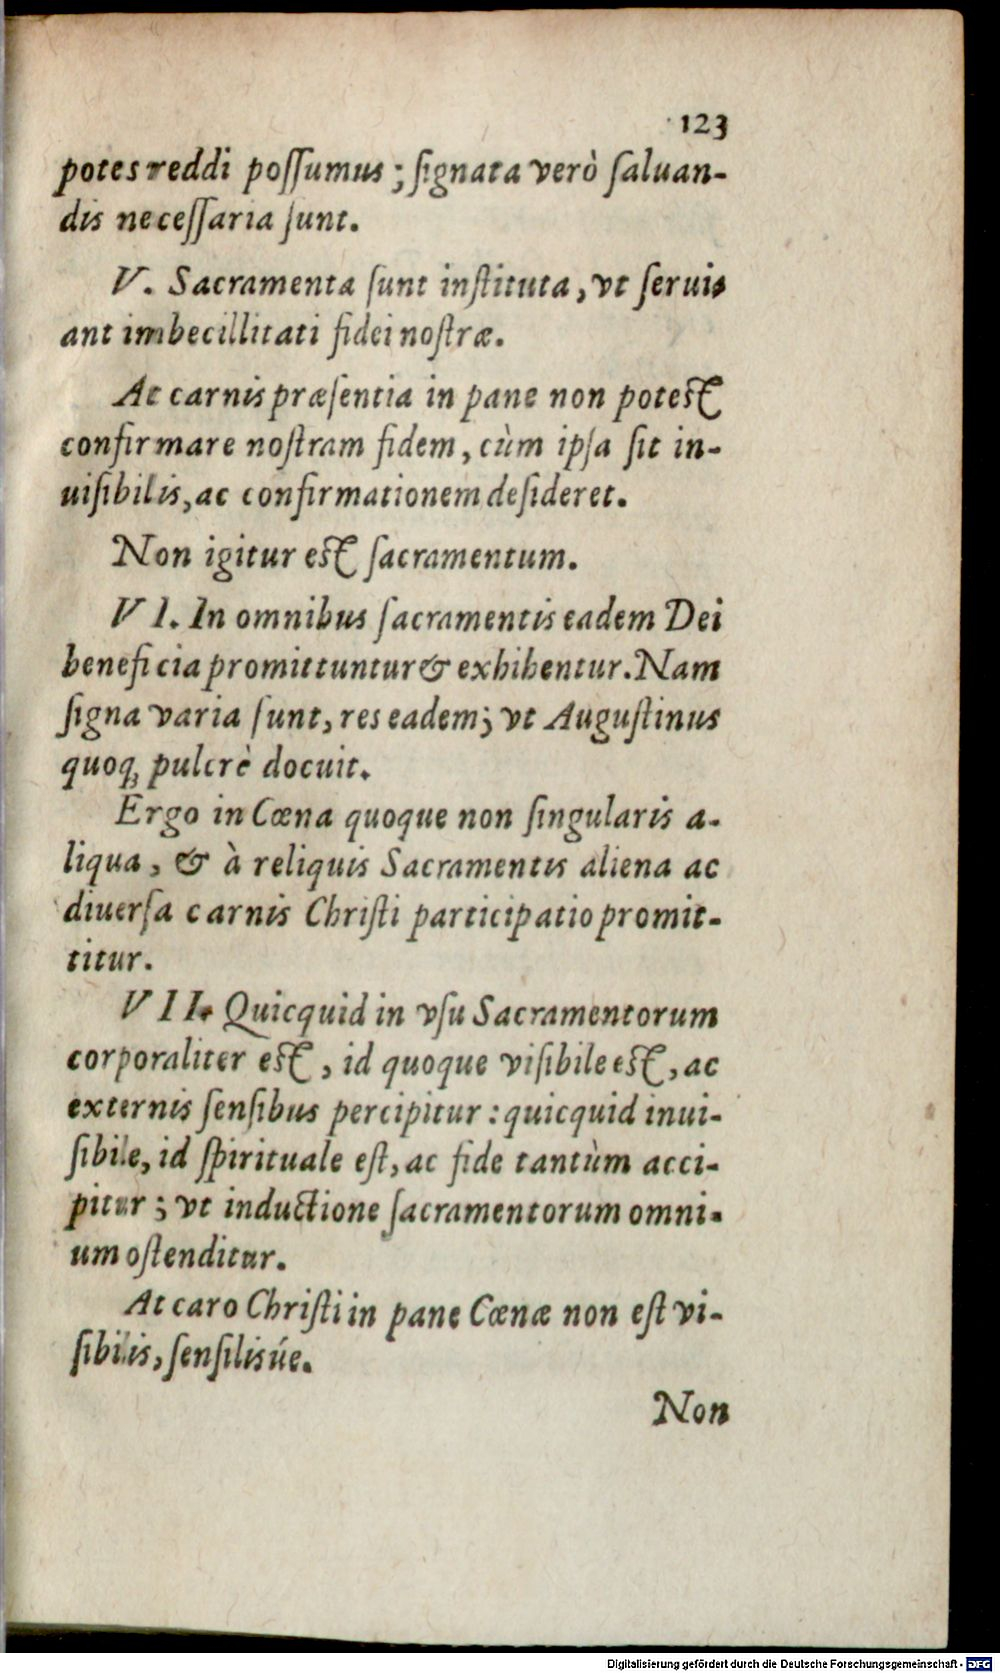 123
potes reddi poſſumus; ſignata verò ſaluan-
dis neceſſaria ſunt.
V. Sacramenta ſunt inſtituta, vt ſerui-
ant imbecillitati fidei noſtræ.
At carnis præſentia in pane non poteſt
confirmare noſtram fidem, cùm ipſa ſit in-
uiſibilis, ac confirmationem deſideret.
Non igitur eſt ſacramentum.
VI. In omnibus ſacramentis eadem Dei
beneficia promittuntur & exhibentur. Nam
ſigna varia ſunt, res eadem; vt Auguſtinus
quoq; pulcrè docuit.
Ergo in Cœna quoque non ſingularis a-
liqua, & à reliquis Sacramentis aliena ac
diuerſa carnis Chriſti participatio promit-
titur.
VII. Quicquid in vſu Sacramentorum
corporaliter eſt, id quoque viſibile eſt, ac
externis ſenſibus percipitur: quicquid inui-
ſibile, id ſpirituale eſt, ac fide tantùm acci-
pitur; vt inductione ſacramentorum omni-
um oſtenditur.
At caro Chriſti in pane Cœnæ non eſt vi-
ſibilis, ſenſilisúe.
Non
Digitalisierung gefördert durch die Deutsche Forschungsgemeinschaft - DFG